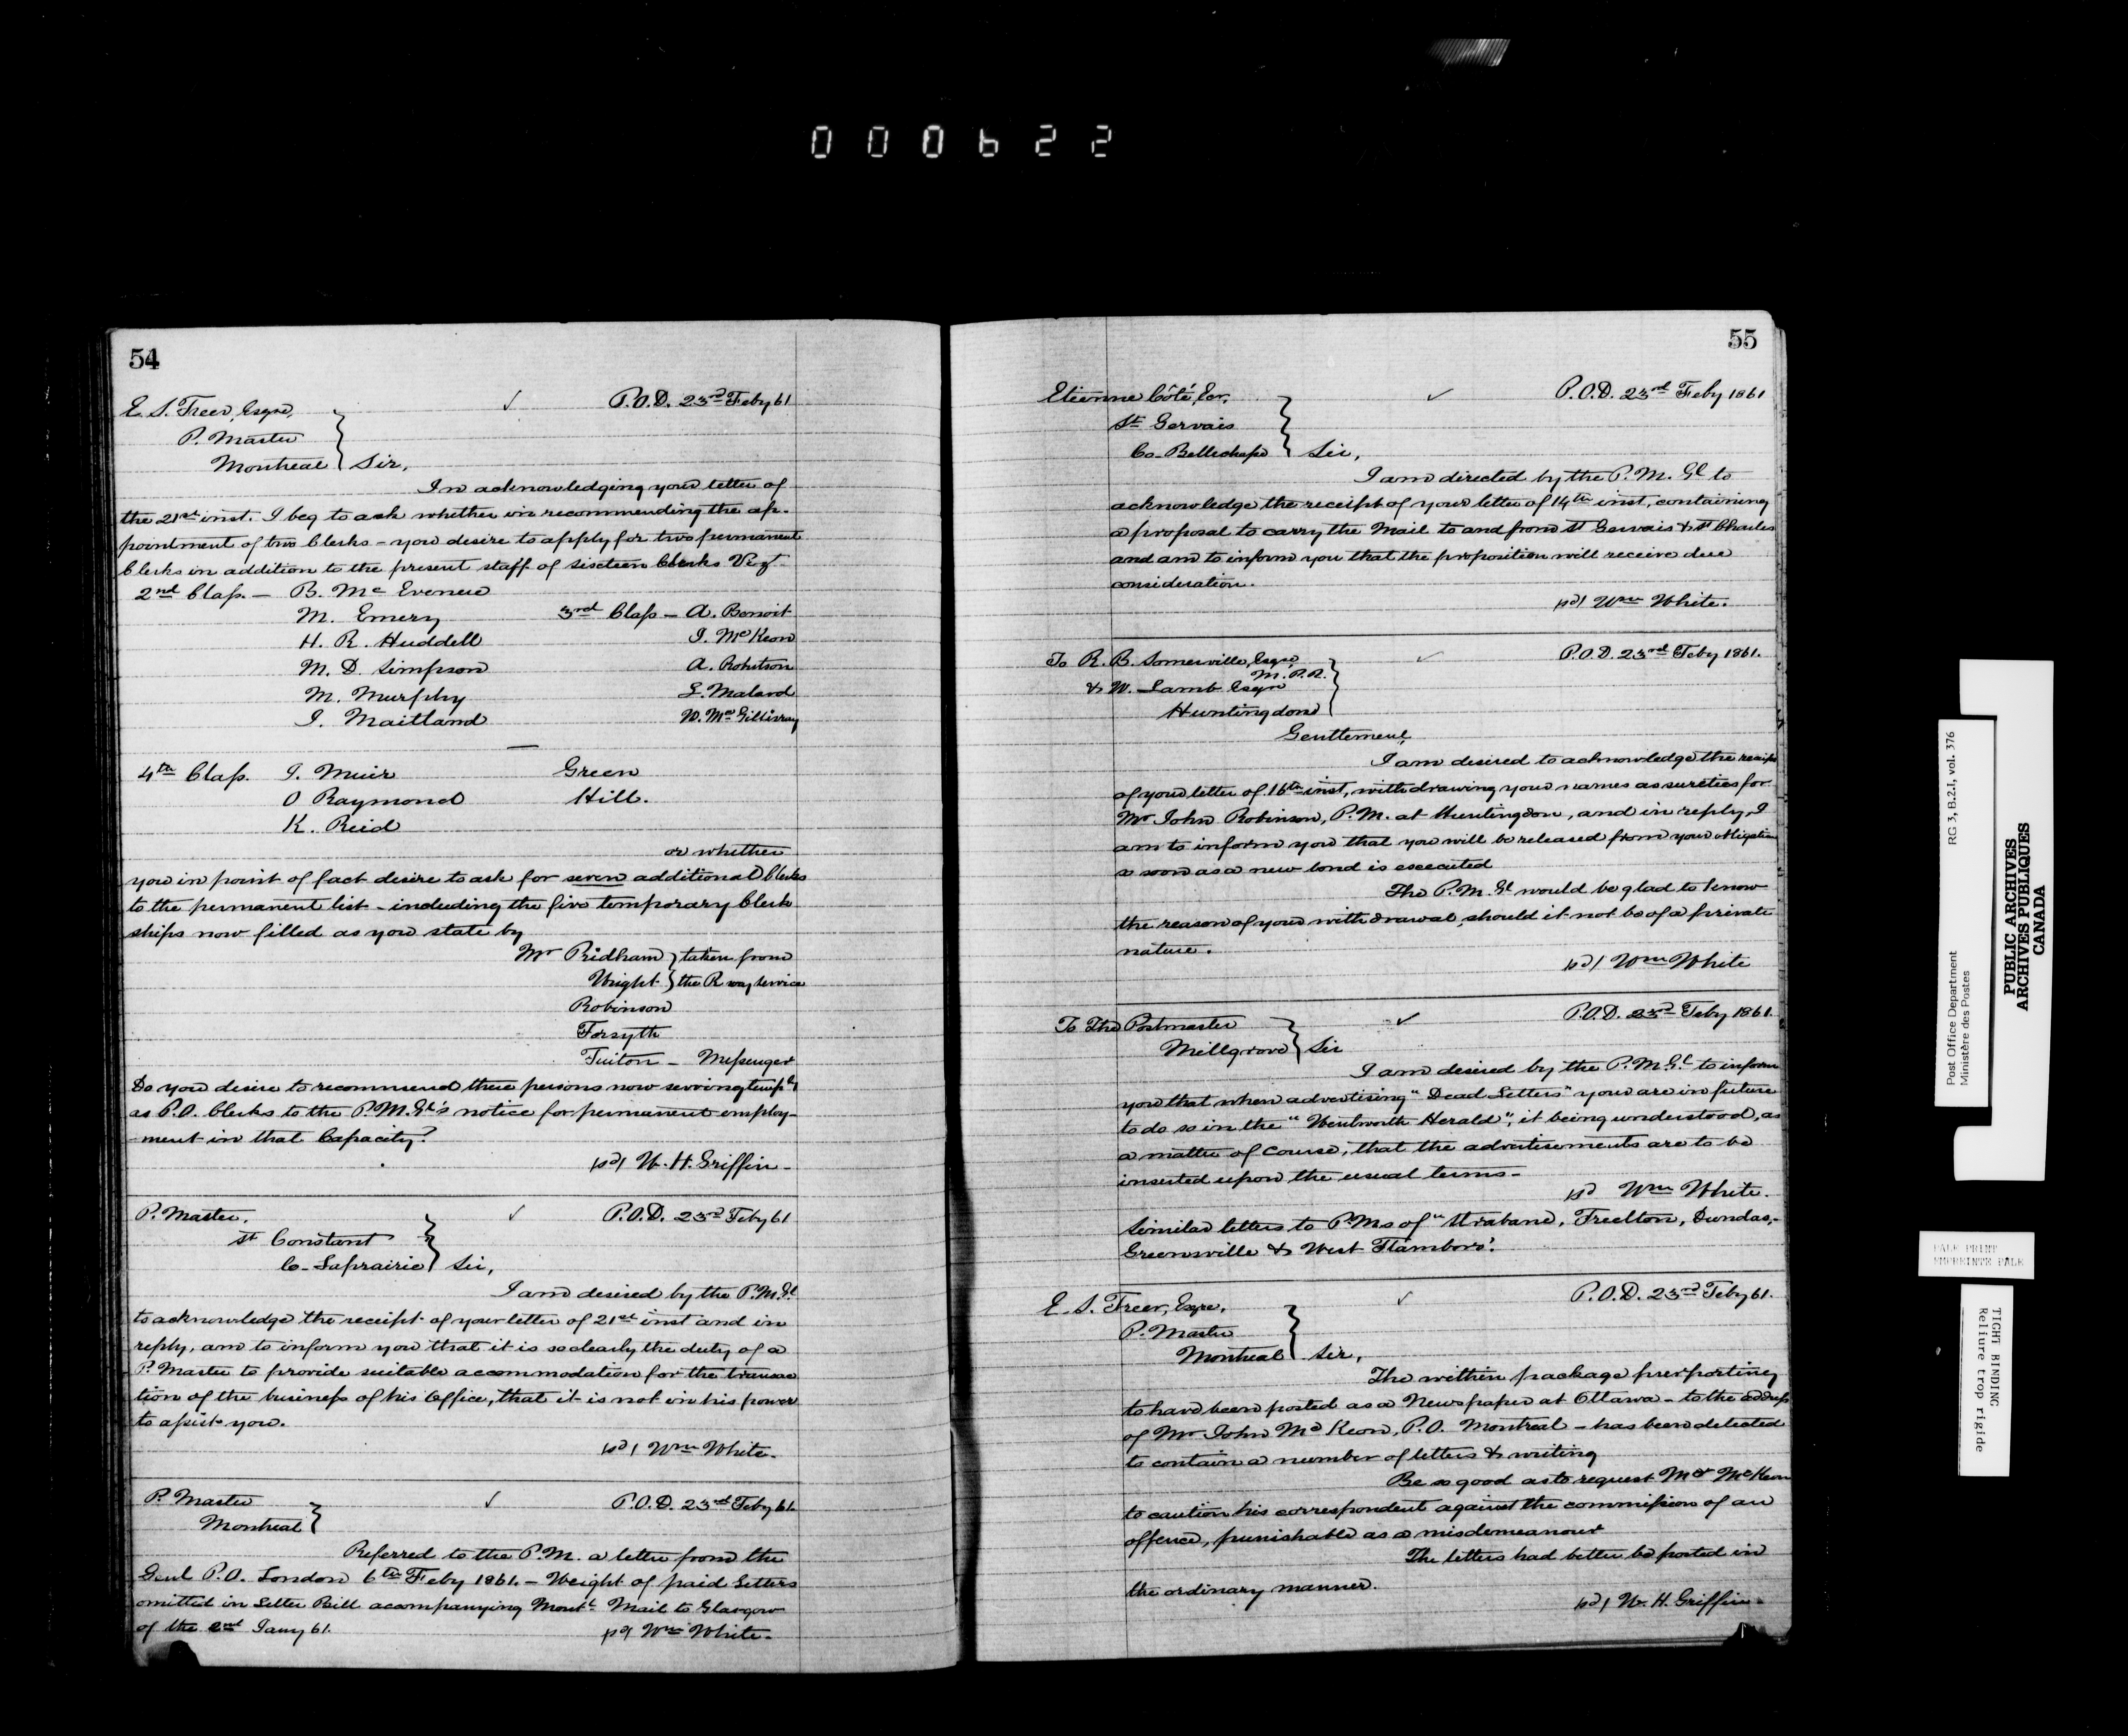 000622
54
E. S. Freer, Esqre, ✓ P.O.D. 23rd Feby 61
P. Master
Montreal } Sir,
In acknowledging your letter of
the 21st inst. I beg to ask whether in recommending the ap-
pointment of two Clerks – you desire to apply for two permanent
Clerks in addition to the present staff of sixteen Clerks Viz
2nd Class. – B. Mc Evenue
M. Emery 3rd Class – A. Benoit
H. R. Huddell J. McKeon
M. D. Simpson A. Robitson
M. Murphy L. Malard
J. Maitland W. McGillivray
4th Class. J. Muir Green
O Raymond Hill.
K. Reid
or whether
you in point of fact desire to ask for seven additional Clerks
to the permanent list – including the five temporary Clerk
ships now filled as you state by
Mr Pridham } taken from
Wright } the R way service
Robinson
Forsyth
Tuiton – Messenger
Do you desire to recommend these persons now serving temply
as P.O. Clerks to the P.M.Gl's notice for permanent employ-
-ment in that Capacity?
sd/ W. H. Griffin –
P. Master, ✓ P.O.D. 23rd Feby 61
St Constant
Co – Laprairie } Sir,
I am desired by the P.M.Gl
to acknowledge the receipt of your letter of 21st inst and in
reply, am to inform you that it is so clearly the duty of a
P. Master to provide suitable accommodation for the transac
tion of the business of his Office, that it is not in his power
to assist you.
sd/ Wm White.
P. Master ✓ P.O.D. 23rd Feby 61.
Montreal }
Referred to the P.M. a letter from the
Genl P.O. London 6th Feby 1861. – Weight of paid Letters
omitted in Letter Bill accompanying Montl Mail to Glasgow
of the 2nd Jany 61. sd/ Wm White.
55
Etienne Côté, Ecr, ✓ P.O.D. 23rd Feby 1861
St Gervais
Co – Bellechasse } Sir,
I am directed by the P.M. Gl to
acknowledge the receipt of your letter of 14th inst, containing
a proposal to carry the Mail to and from St Gervais & St Charles
and am to inform you that the proposition will receive due
consideration.
sd/ Wm White.
To R. B. Somerville, Esqre ✓ P.O.D. 23rd Feby 1861.
M.P.P.
& W. Lamb Esqre
Huntingdon }
Gentlemen,
I am desired to acknowledge the receipt
of your letter of 16th inst, withdrawing your names as sureties for
Mr John Robinson, P.M. at Huntingdon, and in reply, I
am to inform you that you will be released from your obligation
so soon as a new bond is executed
The P.M.Gl would be glad to know
the reason of your withdrawal, should it not be of a private
nature.
sd/ Wm White
To The Postmaster ✓ P.O.D. 23rd Feby 1861.
Millgrove } Sir
I am desired by the P.M.Gl to inform
you that when advertising "Dead Letters" you are in future
to do so in the "Wentworth Herald"; it being understood, as
a matter of course, that the advertisements are to be
inserted upon the usual terms –
sd Wm White.
Similar letters to P.Ms of "Strabane, Freelton, Dundas, –
Greensville & West Flamboro'.
E. S. Freer, Esqre, ✓ P.O.D. 23rd Feby 61.
P. Master
Montreal } Sir,
The within package purporting
to have been posted as a Newspaper at Ottawa – to the address
of Mr John McKeon, P.O. Montreal – has been detected
to contain a number of letters & writing
Be so good as to request Mr McKeon
to caution his correspondent against the commission of an
offence, punishable as a misdemeanour
The letters had better be posted in
the ordinary manner.
sd/ W. H. Griffin –
Post Office Department RG 3, B.2.I, vol. 376
Ministère des Postes
PUBLIC ARCHIVES
ARCHIVES PUBLIQUES
CANADA
PALE PRINT
EMPREINTE PALE
TIGHT BINDING
Reliure trop rigide